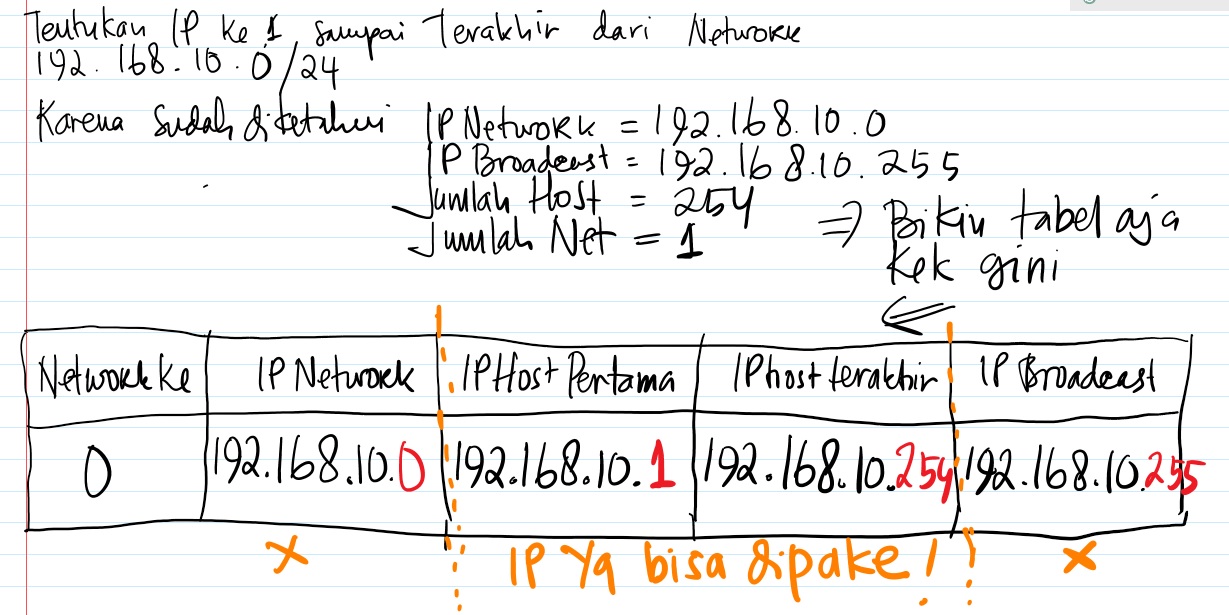 Tentukan IP ke 1 sampai Terakhir dari Network
192.168.10.0/24
Karena sudah diketahui IP Network = 192.168.10.0
IP Broadcast = 192.168.10.255
Jumlah Host = 254
Jumlah Net = 1
⇒ Bikin tabel aja
kek gini
Network ke IP Network IP Host Pertama IP host terakhir IP Broadcast
0 192.168.10.0 192.168.10.1 192.168.10.254 192.168.10.255
X IP Yg bisa dipake! X